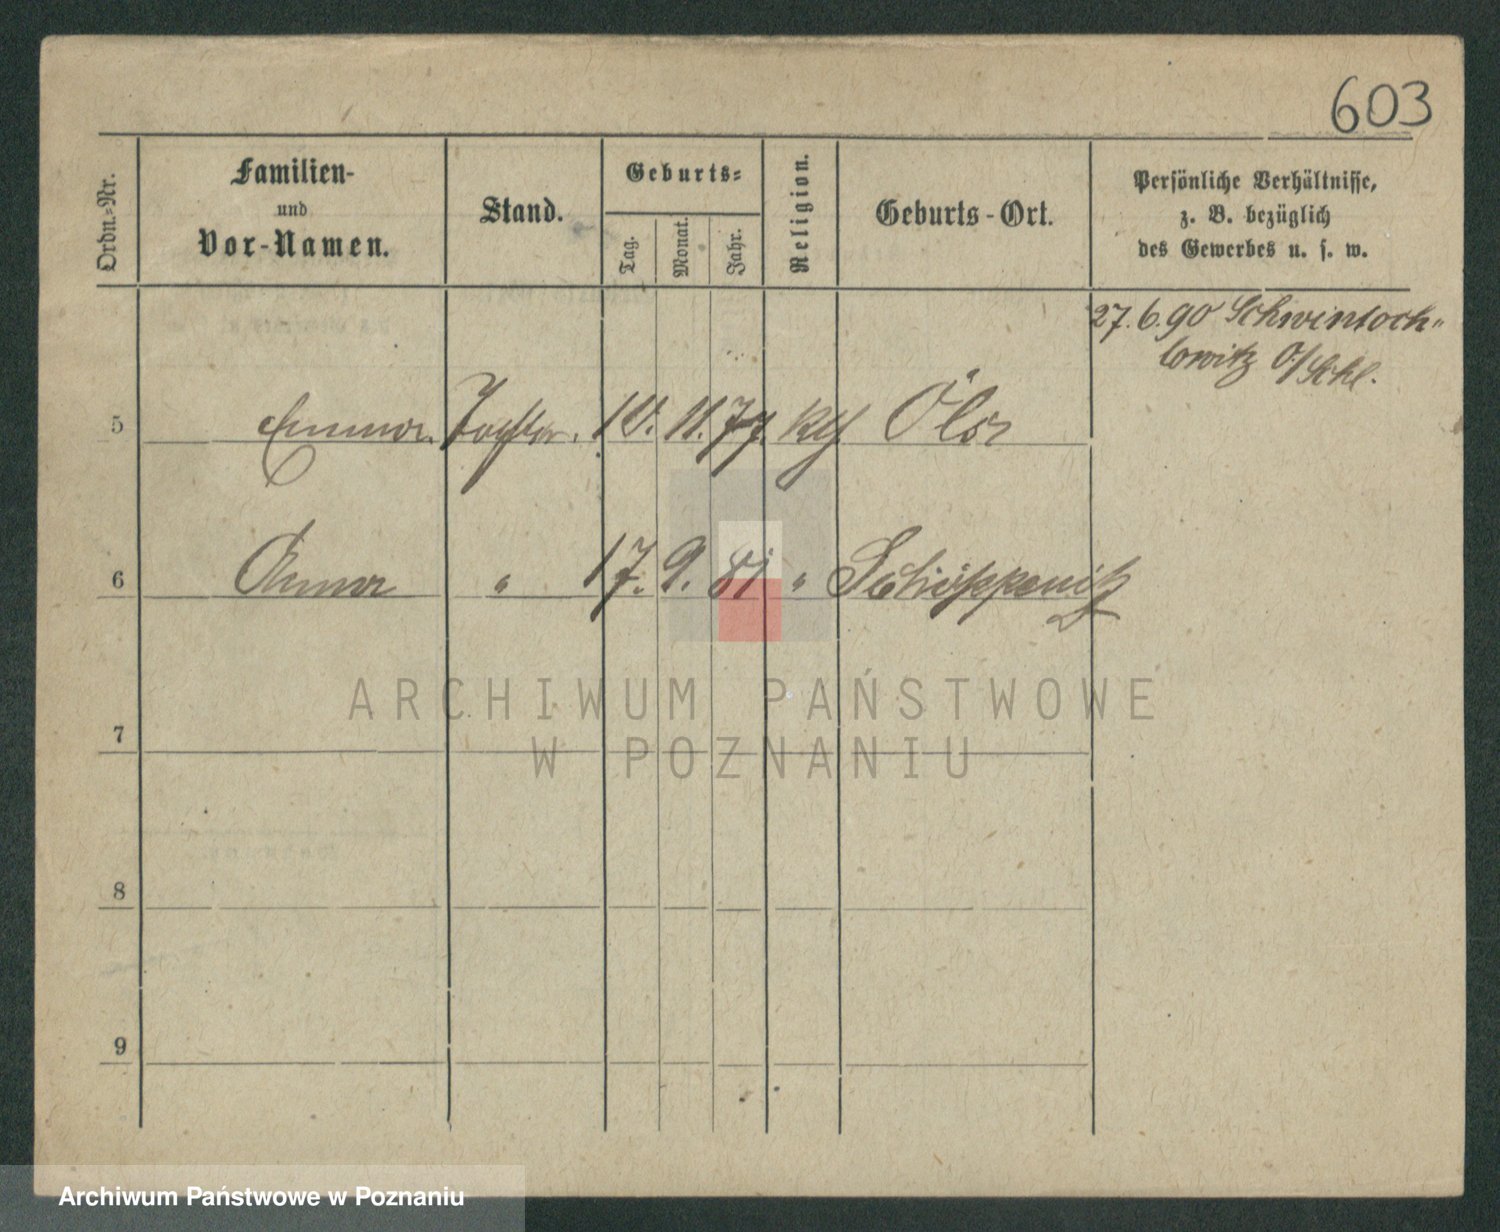 603
Ordn.-Nr.
Familien-
und
Vor-Namen.
Stand.
Geburts-
Tag.
Monat.
Jahr.
Religion.
Geburts-Ort.
Persönliche Verhältnisse,
z. B. bezüglich
des Gewerbes u. s. w.
27.6.90 Schwintoch-
lowitz O/Schl.
5 Emma. Tochter. 10. 11. 77. kth Öls
6 Anna " 17. 9. 81 " Schoppenitz
7
8
9
ARCHIWUM PAŃSTWOWE
W POZNANIU
Archiwum Państwowe w Poznaniu